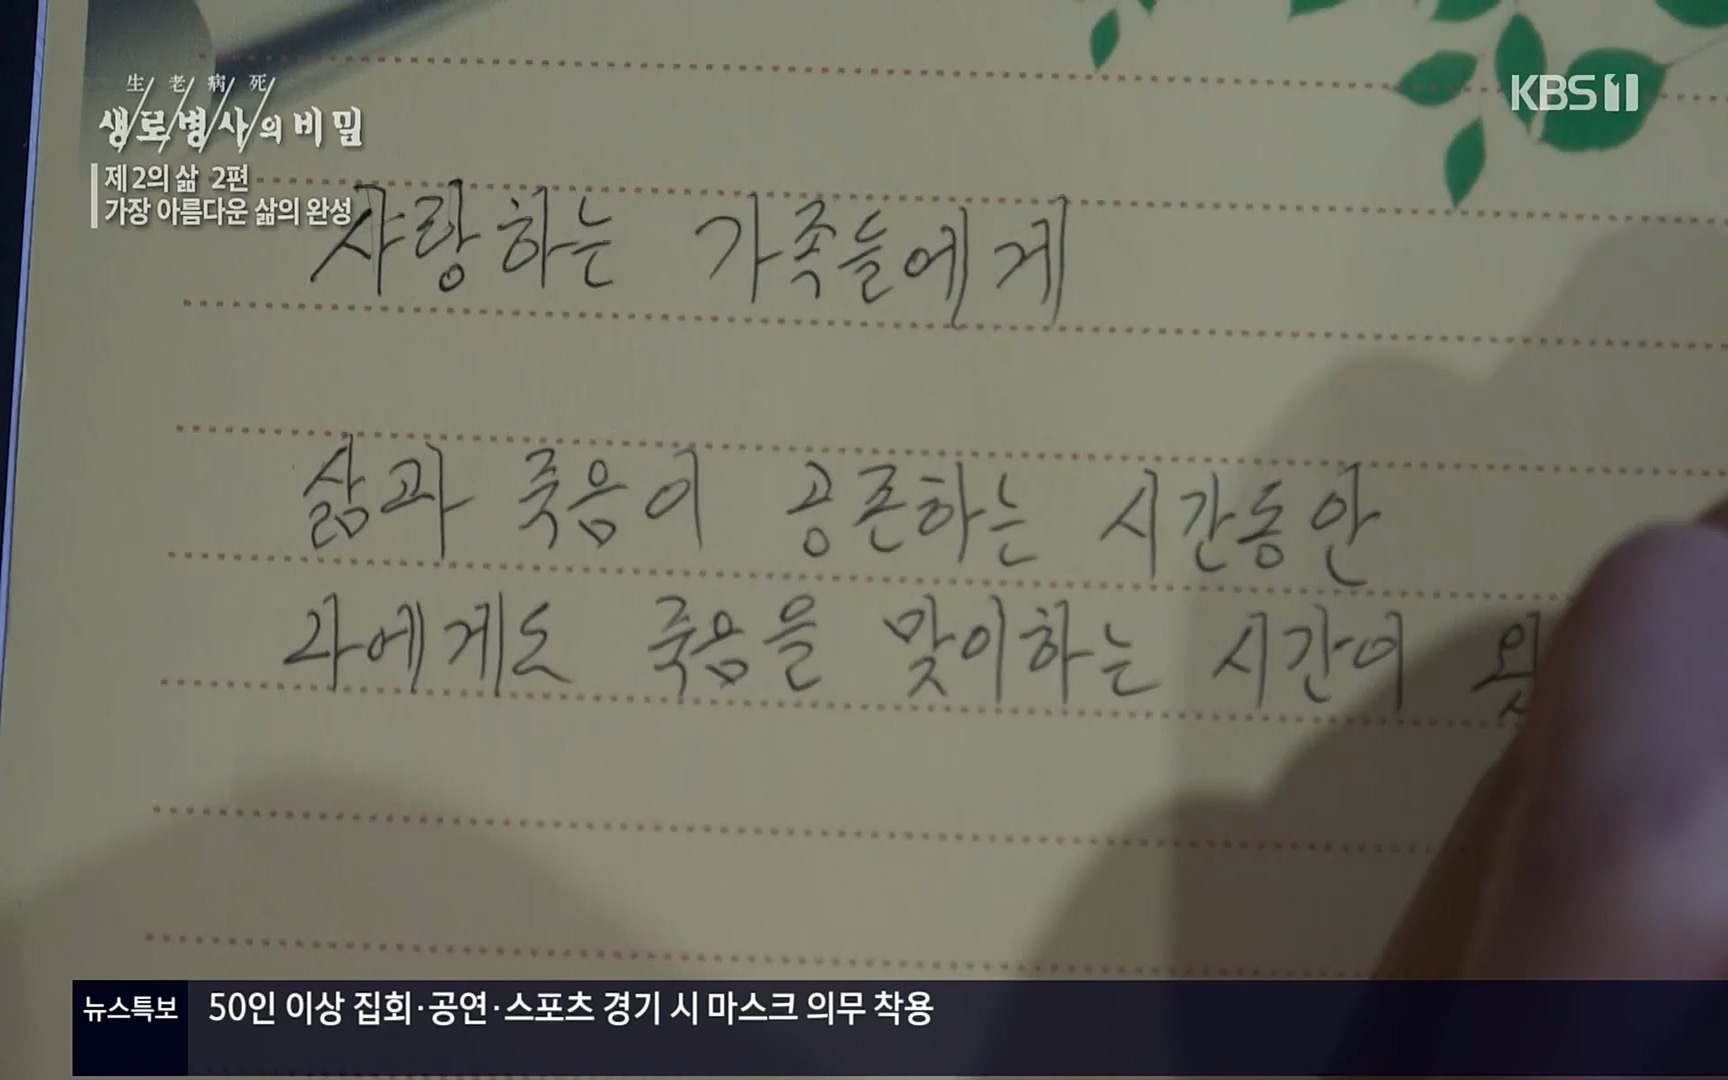 生老病死
생로병사의 비밀
제2의 삶 2편
가장 아름다운 삶의 완성
KBS1
사랑하는 가족들에게
삶과 죽음이 공존하는 시간동안
나에게도 죽음을 맞이하는 시간이 왔
뉴스특보 50인 이상 집회·공연·스포츠 경기 시 마스크 의무 착용